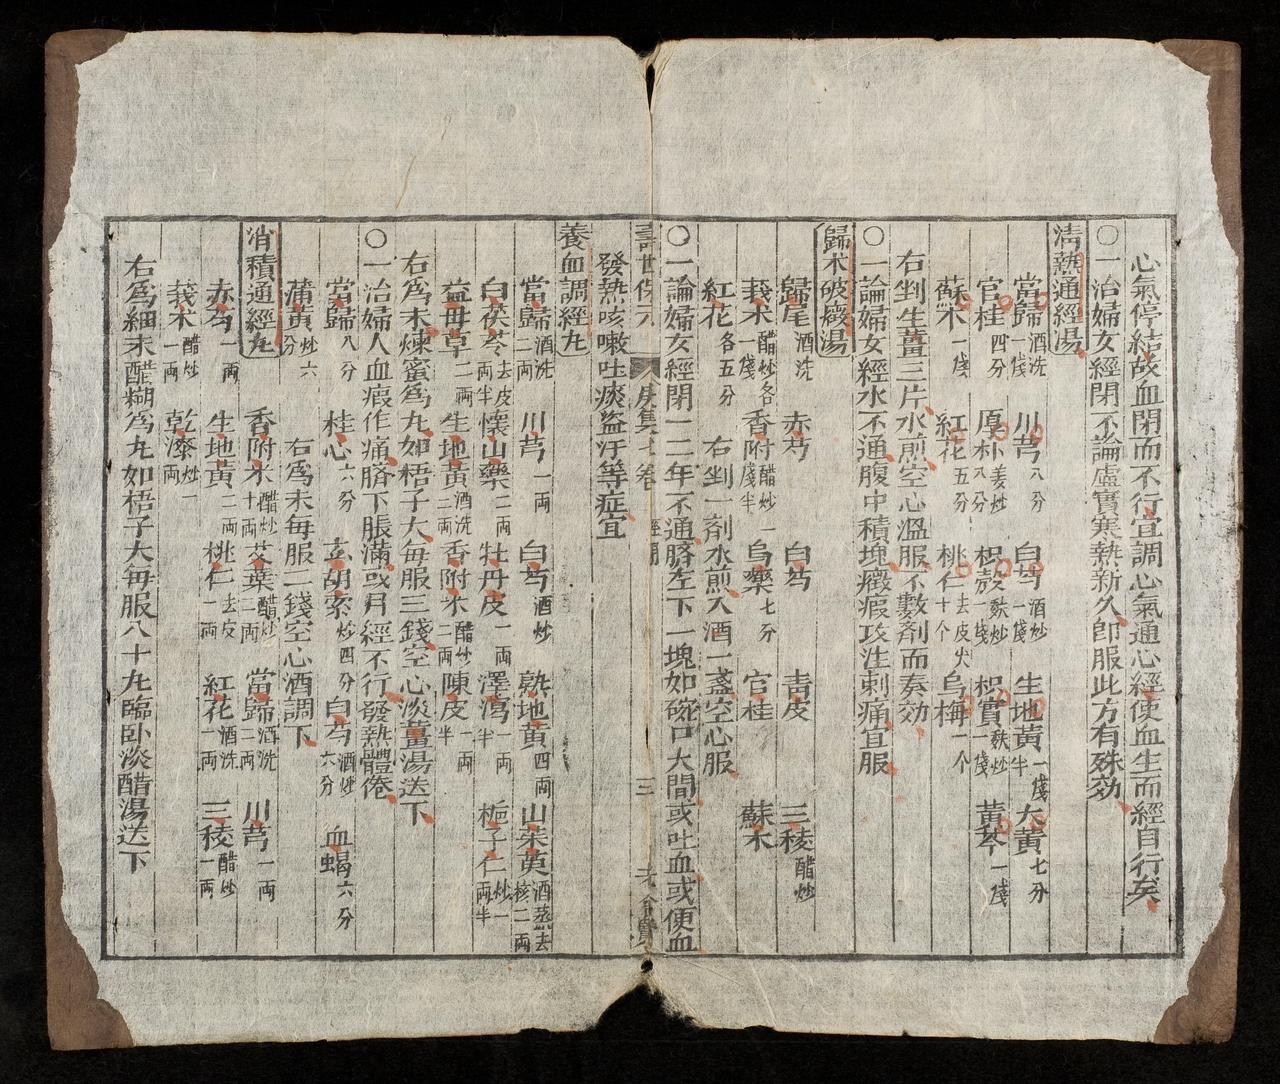 心氣停結故血閉而不行宜調心氣通心經使血生而經自行矣
〇一治婦女經閉不論虛實寒熱新久卽服此方有殊効
淸熱通經湯
當歸一錢酒洗 川芎八分 白芍一錢酒炒 生地黃一錢半 大黃七分
官桂四分 厚朴八分姜炒 枳殼一錢麩炒 枳實一錢麩炒 黃芩一錢
蘇木一錢 紅花五分 桃仁十个去皮尖 烏梅一个
右剉生薑三片水煎空心溫服不數劑而奏効
〇一論婦女經水不通腹中積塊癥瘕攻注刺痛宜服
歸朮破癥湯
歸尾酒洗 赤芍 白芍 靑皮 三稜醋炒
莪朮醋炒各一錢 香附醋炒一錢半 烏藥七分 官桂 蘇木
紅花各五分 右剉一劑水煎入酒一盞空心服
〇一論婦女經閉一二年不通臍左下一塊如碗口大間或吐血或便血
壽世保元 庚集七卷 經閉 三
發熱咳嗽吐痰盜汗等症宜
養血調經丸
當歸酒洗二兩 川芎一兩 白芍酒炒 熟地黃四兩 山茱萸酒蒸去核二兩
白茯苓去皮一兩半 懷山藥二兩 牡丹皮一兩 澤瀉一兩半 梔子仁炒一兩半
益母草二兩 生地黃酒洗二兩 香附米醋炒二兩 陳皮一兩半
右爲末煉蜜爲丸如梧子大每服三錢空心淡薑湯送下
〇一治婦人血瘕作痛臍下脹滿或月經不行發熱體倦
當歸八分 桂心六分 玄胡索炒四分 白芍酒炒六分 血蝎六分
蒲黃炒六分 右爲末每服二錢空心酒調下
消積通經丸
香附米醋炒十兩 艾葉醋炒二兩 當歸酒洗二兩 川芎一兩
赤芍一兩 生地黃二兩 桃仁去皮一兩 紅花酒洗一兩 三稜醋炒一兩
莪朮醋炒一兩 乾漆炒一兩
右爲細末醋糊爲丸如梧子大每服八十丸臨卧淡醋湯送下